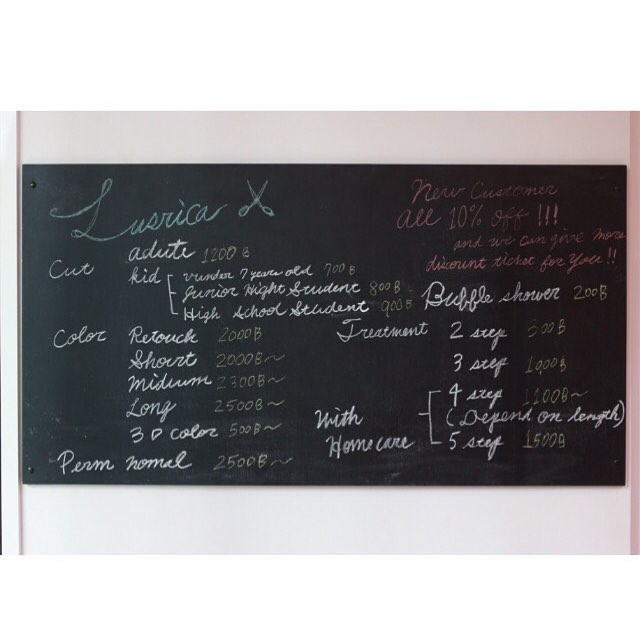 Lusrica
New Customer
all 10% off !!!
and we can give more
discount ticket for you !!
Cut adute 1200B
kid vunder 7 years old 700B
Junior Hight Student 800B
High School Student 900B
Bubble shower 200B
Color Retouch 2000B
Short 2000B~
Midium 2300B~
Long 2500B~
3D color 500B~
Perm nomal 2500B~
Treatment 2 step 500B
3 step 1000B
4 step 1100B~
(Depend on length)
5 step 1500B
With
Homecare